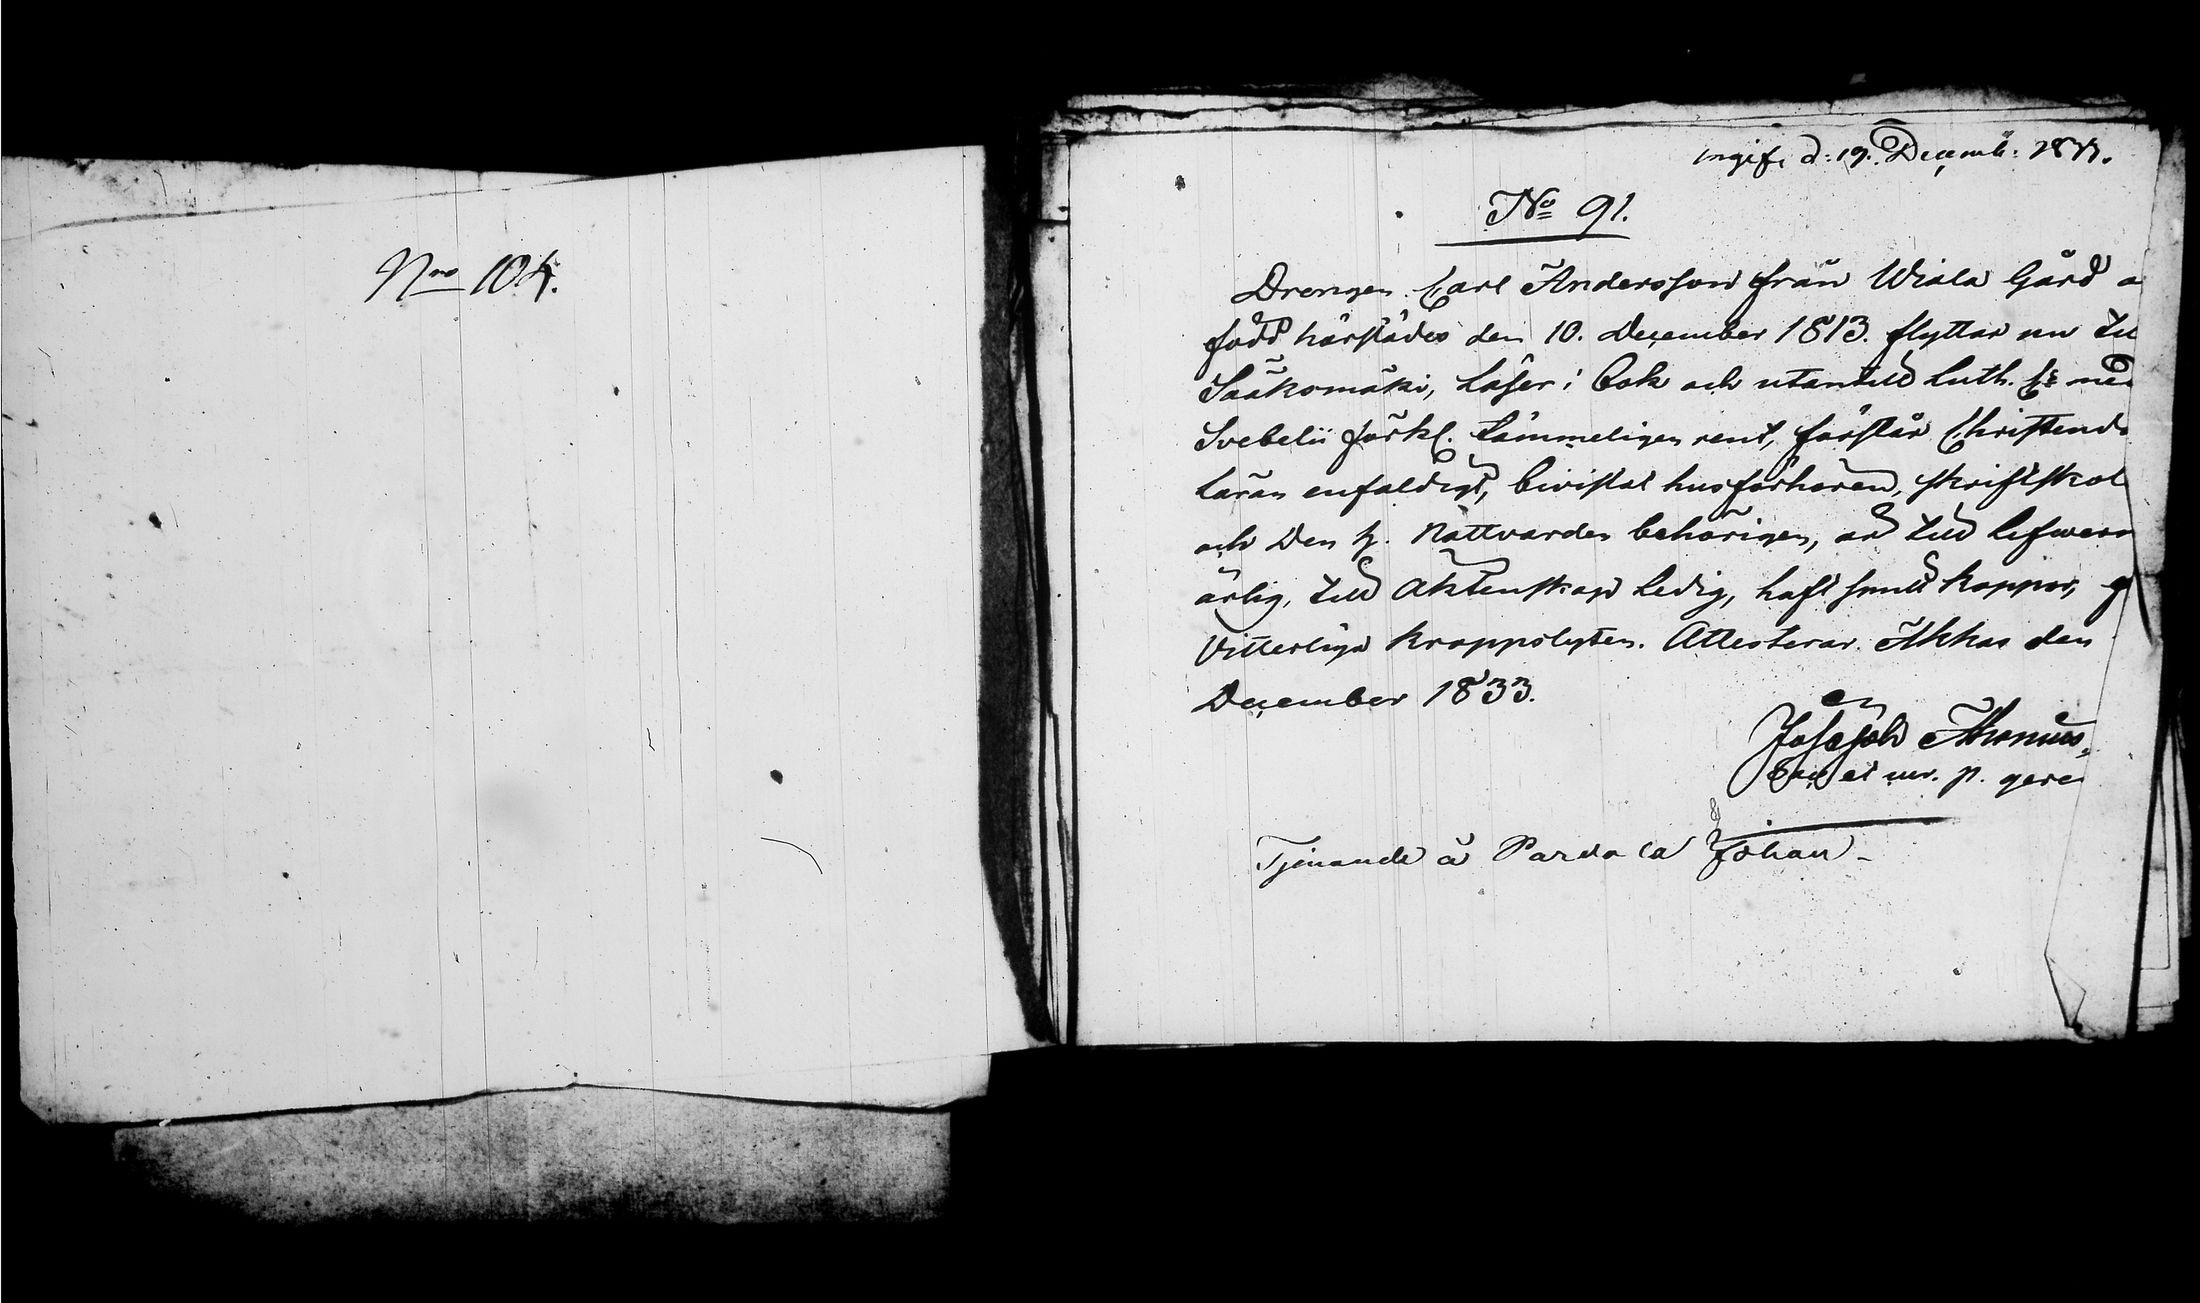 Nro 104.
ingif. d: 19. Decemb:
No 91.
Drengen Carl Andersson från Wiala Gård
född härstädes den 10. December 1813. flyttar nu
Sääksmäki, Läser i bok och utantill Luth. Cs med
Svebelii förkl. tämmeligen rent, förstår Christend
läran enfaldigt, bivistat husförhören, skriftskol
och den h. Nattvarden behörigen, är till lefwern
ärlig, till äktenskap ledig, haft smittkoppor,
Vitterliga kroppslyten. Attesterar Akkas den
December 1833.
Joseph
Sac et p.
Tjenande å Johan